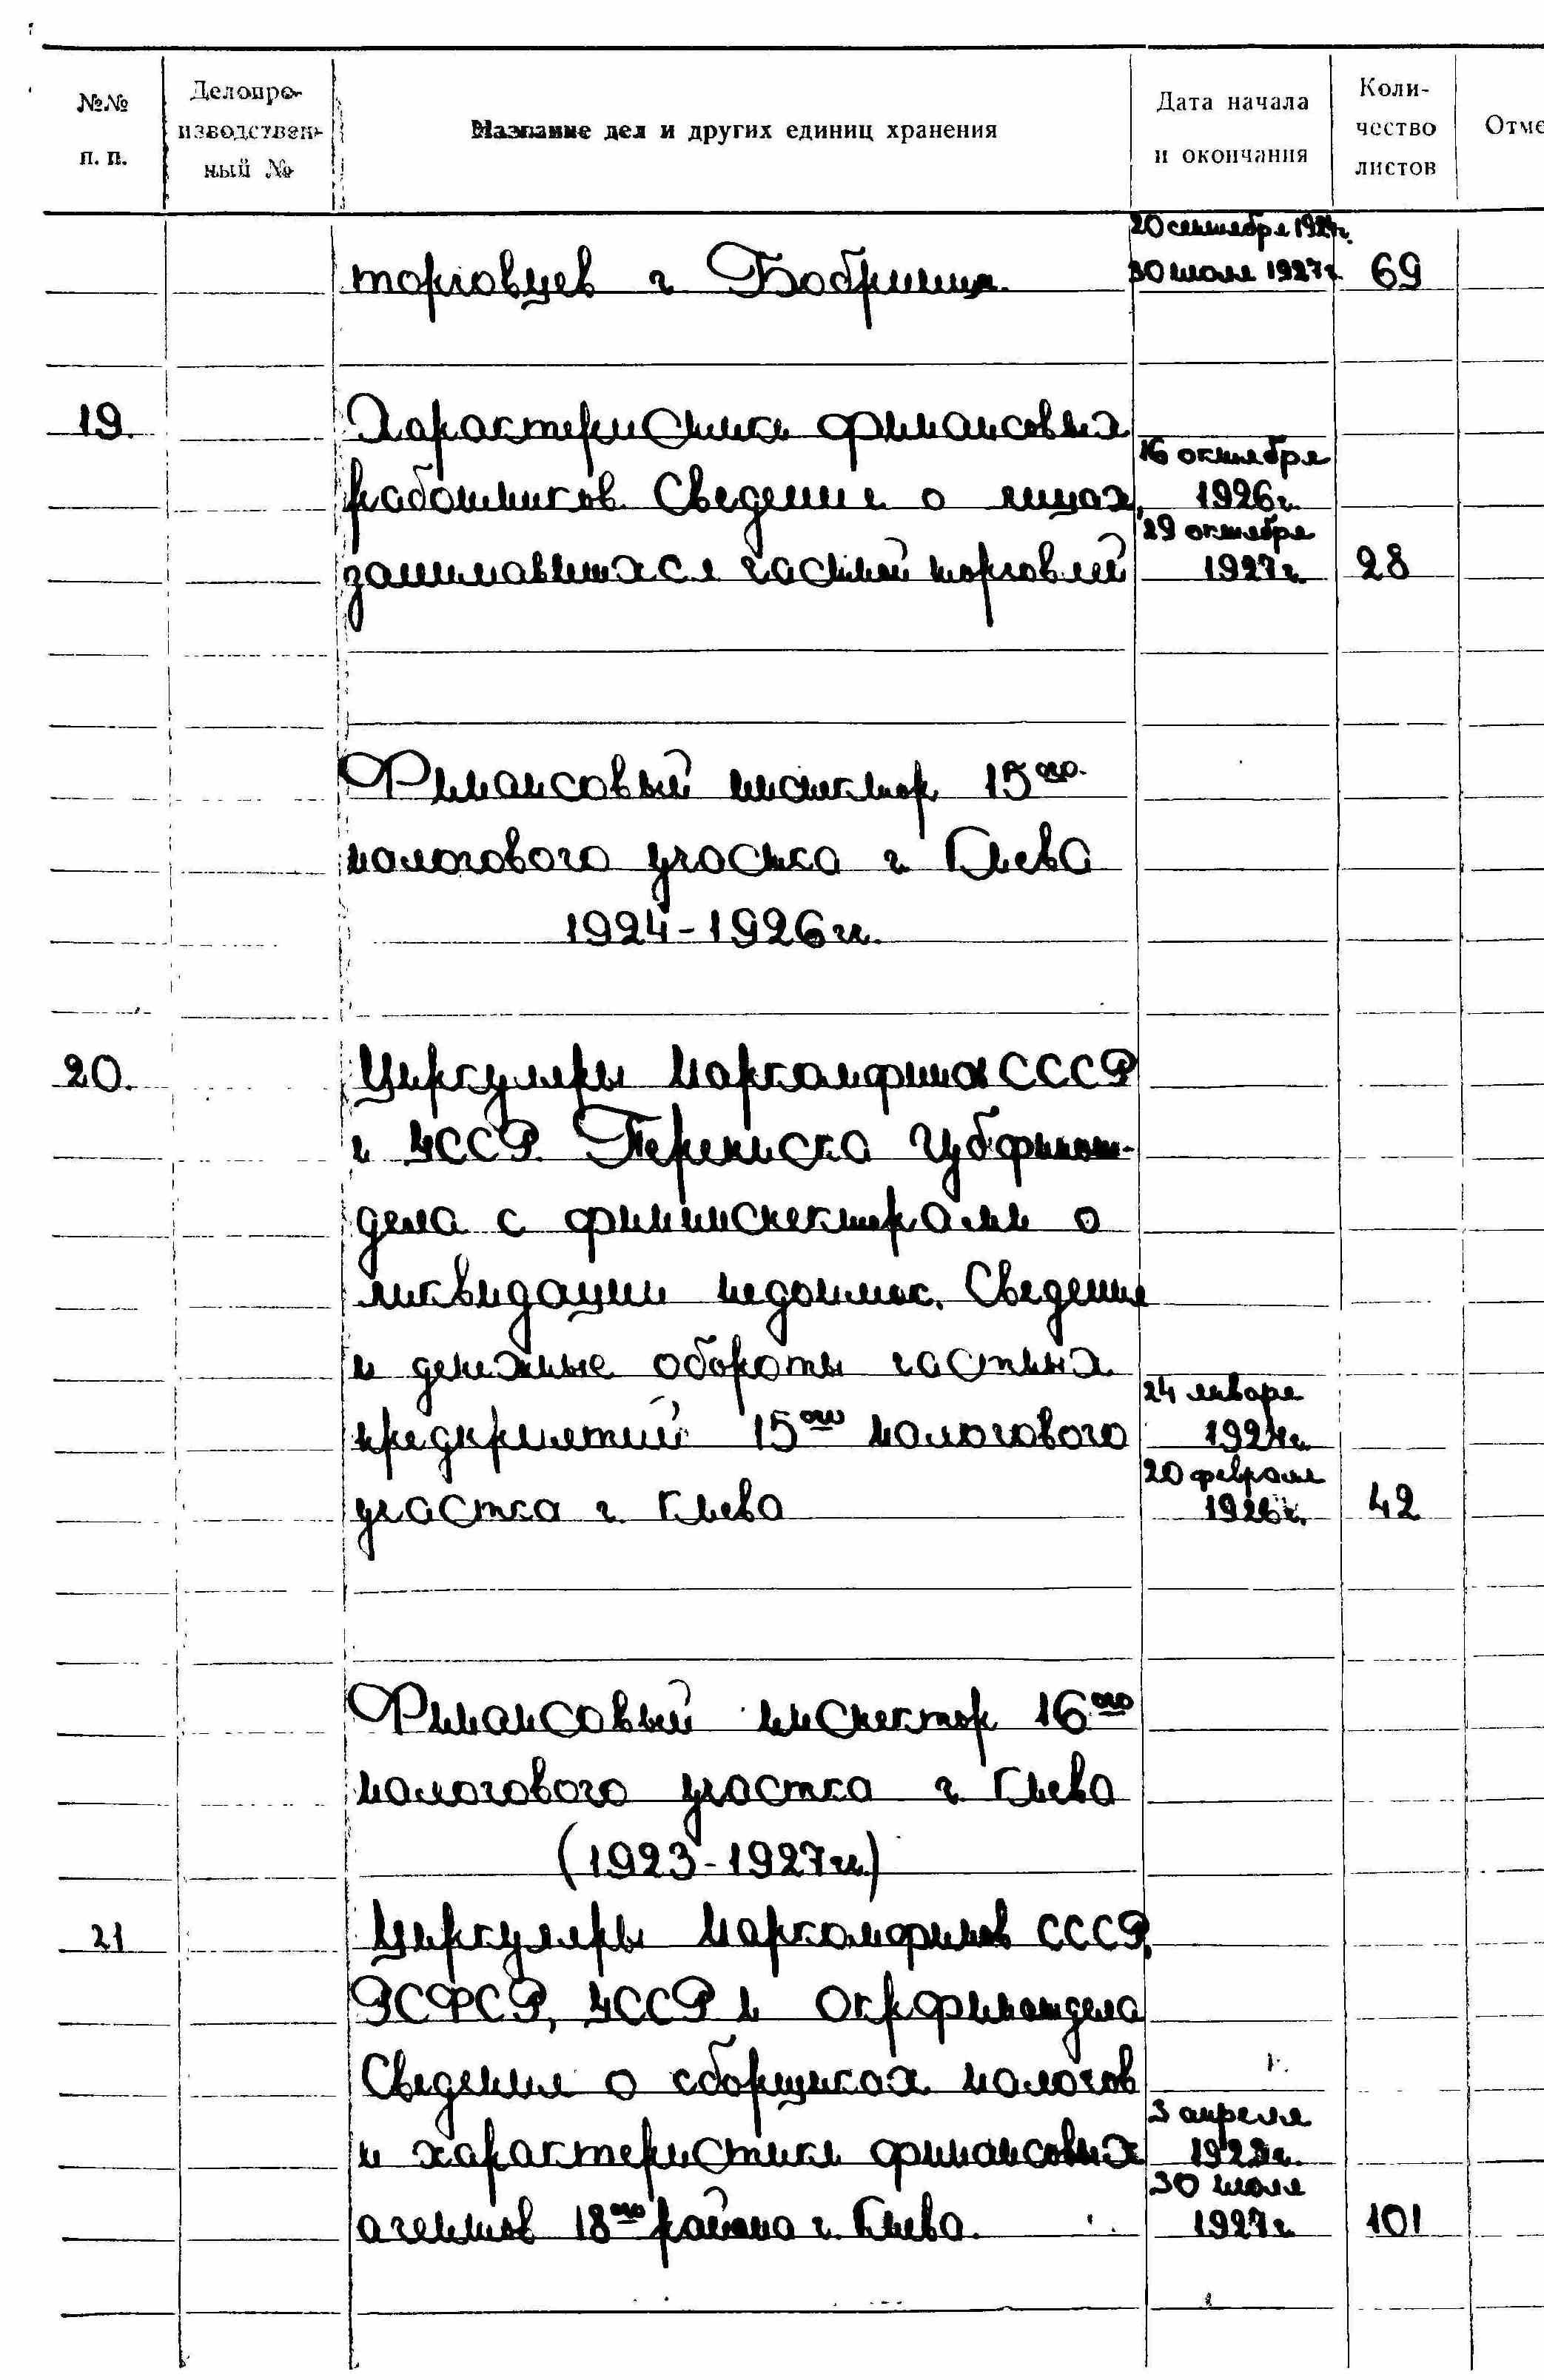 №№ п. п.
Делопроизводственный №
Название дел и других единиц хранения
Дата начала и окончания
Количество листов
Отме
20 сентября 1924г.
торговцев г Бобринца. 30 июля 1927г. 69
19. Характеристики финансовых
16 октября
работников. Сведения о лицах, 1926г.
29 октября
занимавшихся частной торговлей 1927г. 28
Финансовый инспектор 15ого
налогового участка г Киева
1924-1926гг.
20. Циркуляры Наркомфина СССР
и УССР. Переписка Губфинот-
дела с фининспекторами о
ликвидации недоимок. Сведения
и денежные обороты частных
24 января
предприятий 15ого налогового 1924г.
20 февраля
участка г. Киева 1926г. 42
Финансовый инспектор 16ого
налогового участка г. Киева
(1923-1927гг.)
21 Циркуляры Наркомфинов СССР,
РСФСР, УССР и Окрфинотдела
Сведения о сборщиках налогов
3 апреля
и характеристики финансовых 1923г.
30 июля
агентов 18ого района г. Киева. 1927г 101